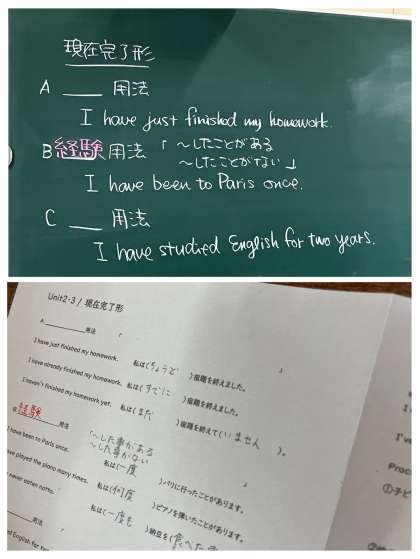 現在完了形
A ___ 用法
I have just finished my homework.
B 経験 用法 「～したことがある
～したことがない」
I have been to Paris once.
C ___ 用法
I have studied English for two years.
Unit2・3 / 現在完了形
A ___用法 「
」
I have just finished my homework. 私は(ちょうど)宿題を終えました。
I have already finished my homework. 私は(すでに)宿題を終えました。
I haven't finished my homework yet. 私は(まだ)宿題を終えて(いません)。
B 経験 用法 「～した事がある
～した事がない
」
I have been to Paris once. 私は(一度)パリに行ったことがあります。
have played the piano many times. 私は(何度)ピアノを弾いたことがあります。
never eaten natto. 私は(一度も)納豆を(食べた
用法
ed English for two
I
I've
Prac
①子ど